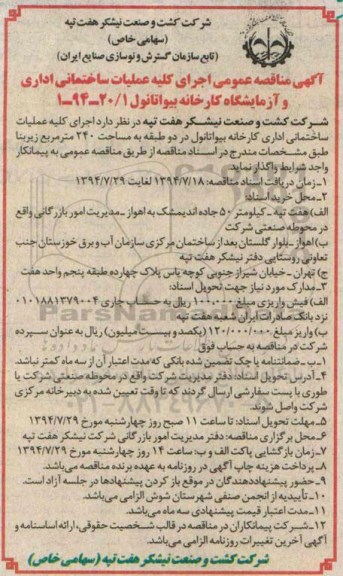 شرکت کشت و صنعت نیشکر هفت تپه
(سهامی خاص)
(تابع سازمان گسترش و نوسازی صنایع ایران)
آگهی مناقصه عمومی اجرای کلیه عملیات ساختمانی اداری
و آزمایشگاه کارخانه بیواتانول ۲۰/۱-۹۴-۱
شرکت کشت و صنعت نیشکر هفت تپه در نظر دارد اجرای کلیه عملیات
ساختمانی اداری کارخانه بیواتانول در دو طبقه به مساحت ۲۴۰ مترمربع زیربنا
طبق مشخصات مندرج در اسناد مناقصه از طریق مناقصه عمومی به پیمانکار
واجد شرایط واگذار نماید.
۱-زمان دریافت اسناد مناقصه: ۱۳۹۴/۷/۱۸ لغایت ۱۳۹۴/۷/۲۹
۲-محل خرید اسناد:
الف) هفت تپه - کیلومتر ۵۰ جاده اندیمشک به اهواز - مدیریت امور بازرگانی واقع
در محوطه صنعتی شرکت
ب) اهواز - بلوار گلستان بعد از ساختمان مرکزی سازمان آب و برق خوزستان جنب
تعاونی روستایی دفتر نیشکر هفت تپه
ج) تهران - خیابان شیراز جنوبی کوچه یاس پلاک چهارده طبقه پنجم واحد هفت
۳-مدارک مورد نیاز جهت تحویل اسناد:
الف) فیش واریزی مبلغ ۱۰۰،۰۰۰ ریال به حساب جاری ۰۱۰۱۸۸۱۳۷۹۰۰۴
نزد بانک صادرات ایران شعبه هفت تپه
ب) واریز مبلغ ۱۲۰/۰۰۰/۰۰۰ (یکصد و بیست میلیون) ریال به عنوان سپرده
شرکت در مناقصه به حساب فوق
۱-ب- ضمانتنامه یا چک تضمین شده بانکی که مدت اعتبار آن از سه ماه کمتر نباشد.
۴- آدرس تحویل اسناد: دفتر مدیریت شرکت واقع در محوطه صنعتی شرکت یا
طوری با پست سفارشی ارسال گردند که تا وقت تعیین شده به دبیرخانه مرکزی
شرکت واصل شوند.
۵-مهلت تحویل اسناد: تا ساعت ۱۱ صبح روز چهارشنبه مورخ ۱۳۹۴/۷/۲۹
۶-محل برگزاری مناقصه: دفتر مدیریت امور بازرگانی شرکت نیشکر هفت تپه
۷-زمان بازگشایی پاکت الف و ب: ساعت ۱۴ روز چهارشنبه مورخ ۱۳۹۴/۷/۲۹
۸-پرداخت هزینه چاپ آگهی در روزنامه به عهده برنده مناقصه می‌باشد.
۹-حضور پیشنهاددهندگان در موقع باز کردن پیشنهادها در جلسه آزاد است.
۱۰-تأییدیه از انجمن صنفی شهرستان شوش الزامی می‌باشد.
۱۱-مدت اعتبار قیمت پیشنهادی سه ماه می‌باشد.
۱۲-شرکت پیمانکاران در مناقصه در قالب شخصیت حقوقی، ارائه اساسنامه و
آگهی آخرین تغییرات روزنامه الزامی می‌باشد.
شرکت کشت و صنعت نیشکر هفت تپه (سهامی خاص)